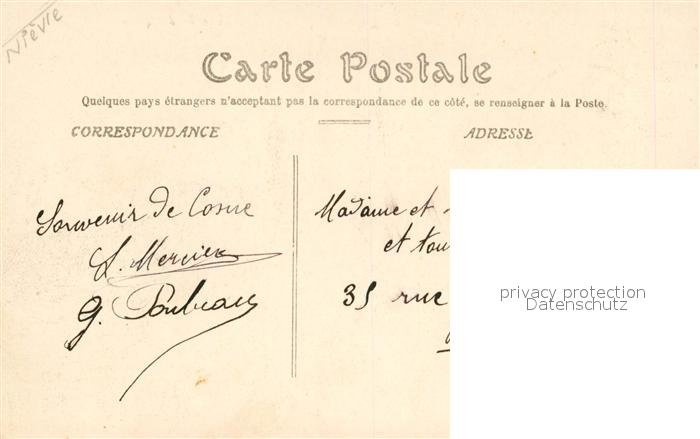 Nièvre
Carte Postale
Quelques pays étrangers n'acceptant pas la correspondance de ce côté, se renseigner à la Poste.
CORRESPONDANCE
ADRESSE
Souvenir de Cosne
L. Mercier
G.
Madame et
et tou
35 rue
privacy protection
Datenschutz